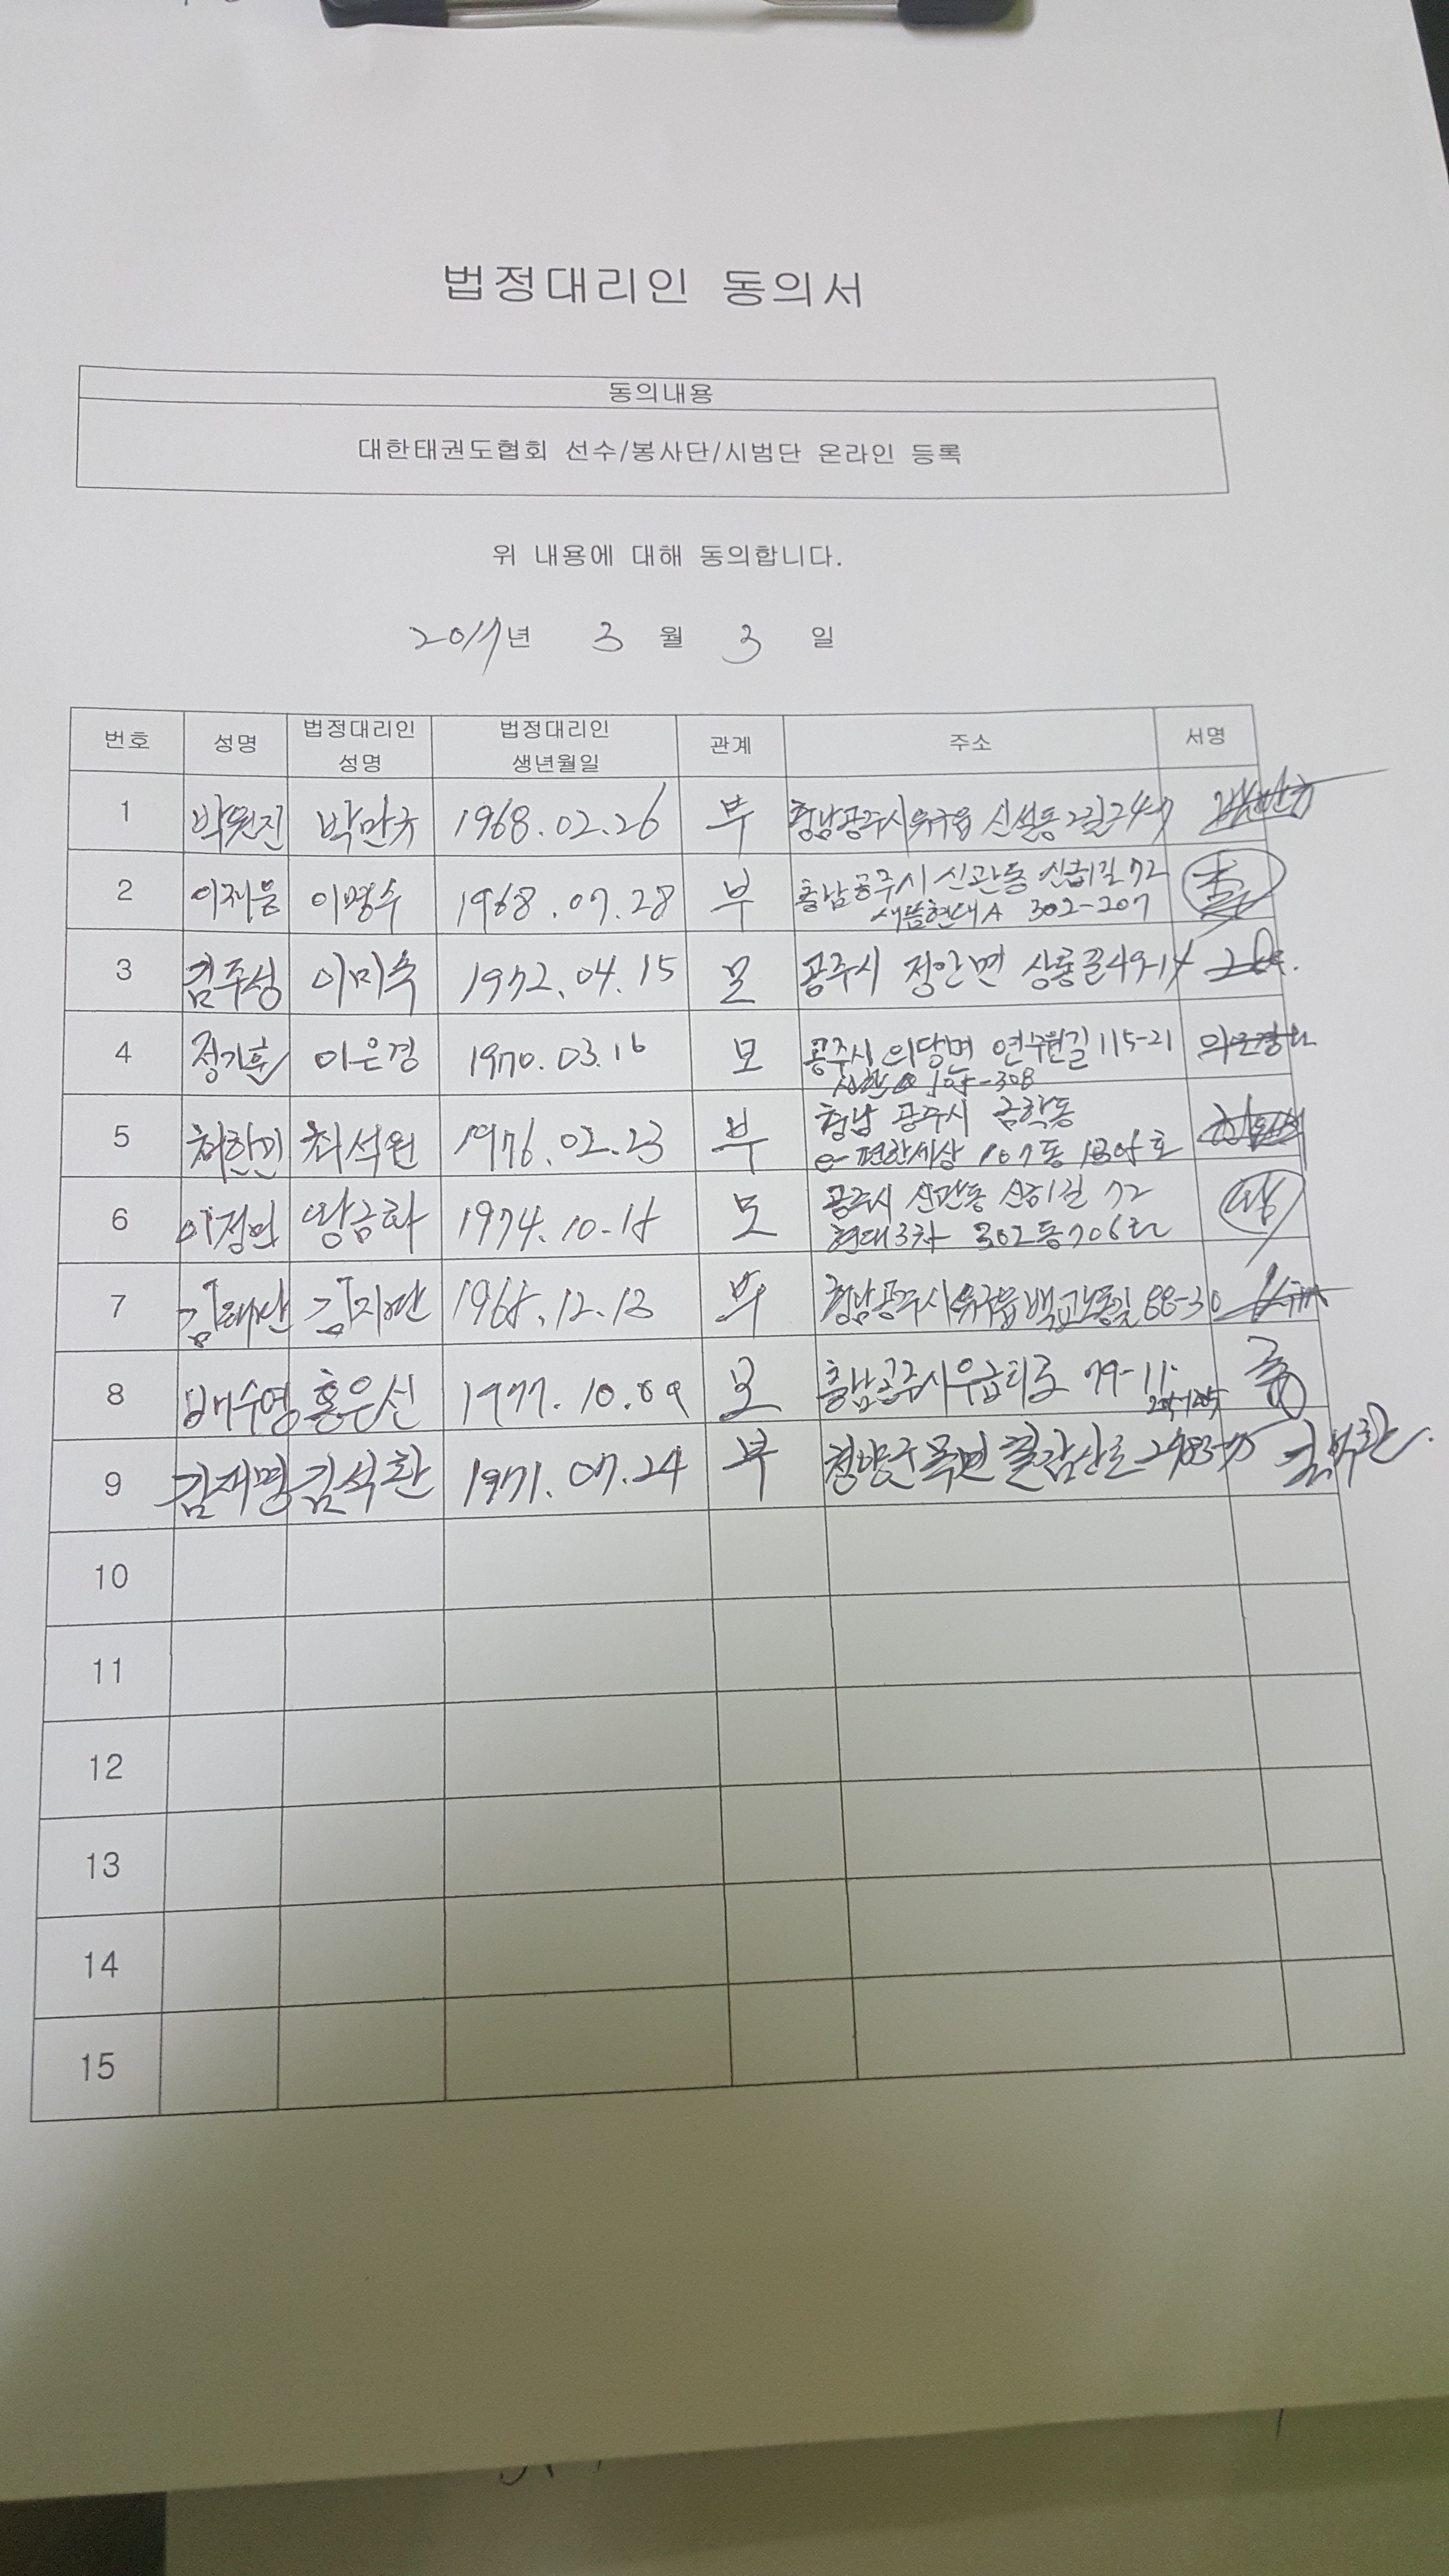 법정대리인 동의서
동의내용
대한태권도협회 선수/봉사단/시범단 온라인 등록
위 내용에 대해 동의합니다.
2017년 3 월 3 일
번호 성명 법정대리인 성명 법정대리인 생년월일 관계 주소 서명
1 박원진 박만규 1968.02.26 부 충남공주시유구읍 신설동2길
2 이재용 이명수 1968.07.28 부 충남공주시 신관동 신금1길 72
새뜸현대A 302-207
3 김주성 이미숙 1972.04.15 모 공주시 정안면 상룡골49-14
4 정기훈 이은경 1970.03.16 모 공주시 의당면 연수원길 115-21
-308
5 최한빈 최석원 1976.02.23 부 충남 공주시 금학동
e-편한세상 107동 호
6 이정민 왕금화 1974.10.18 모 공주시 신관동 72
현대3차 302동706호
7 김태산 1968.12.13 부 충남공주시유구읍백교노동길 88-30
8 배수영 홍은선 1977.10.09 모 충남공주시우금티로 79-11
9 김재명 김석환 1971.07.24 부 청양군목면 칠갑산로 김석환
10
11
12
13
14
15